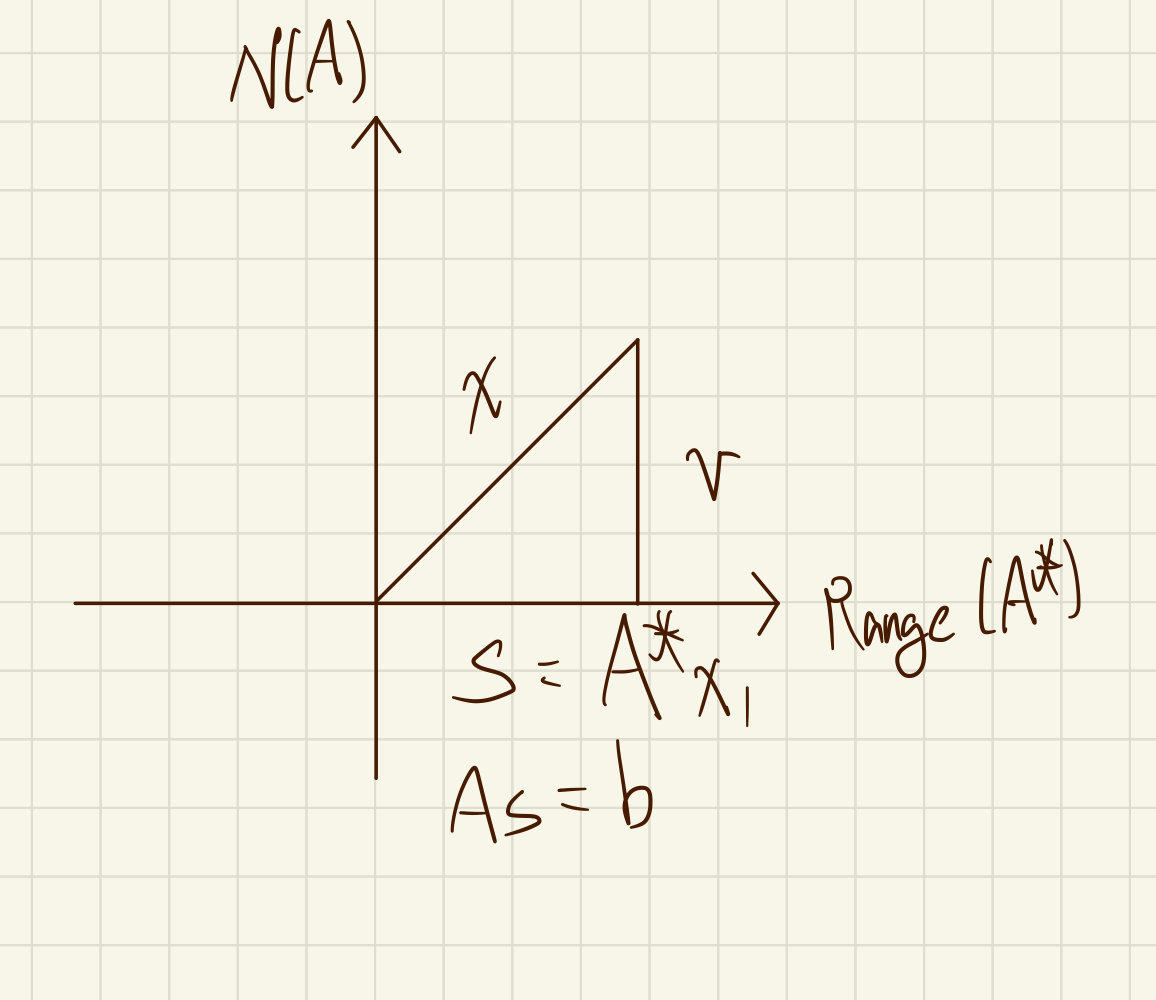 N(A)
x
v
Range (A*)
S = A*x₁
As = b